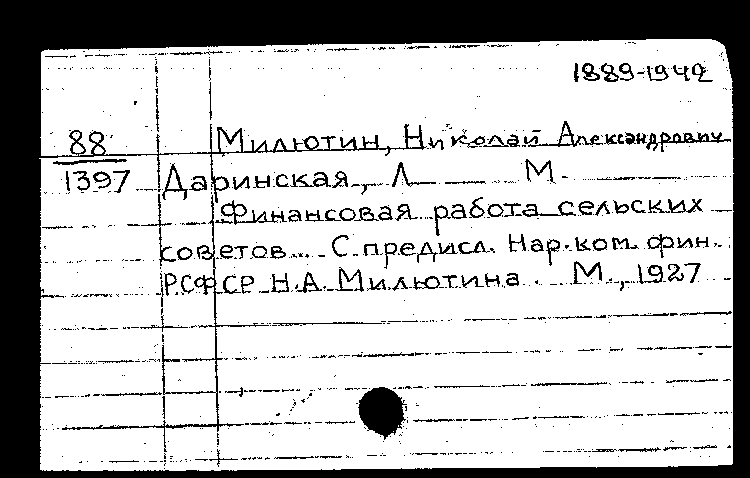 1889-1942
88 Милютин, Николай Александрович
1397 Даринская, Л М.
Финансовая работа сельских
советов... С предисл. Нар.ком. фин.
РСФСР Н.А. Милютина. М., 1927